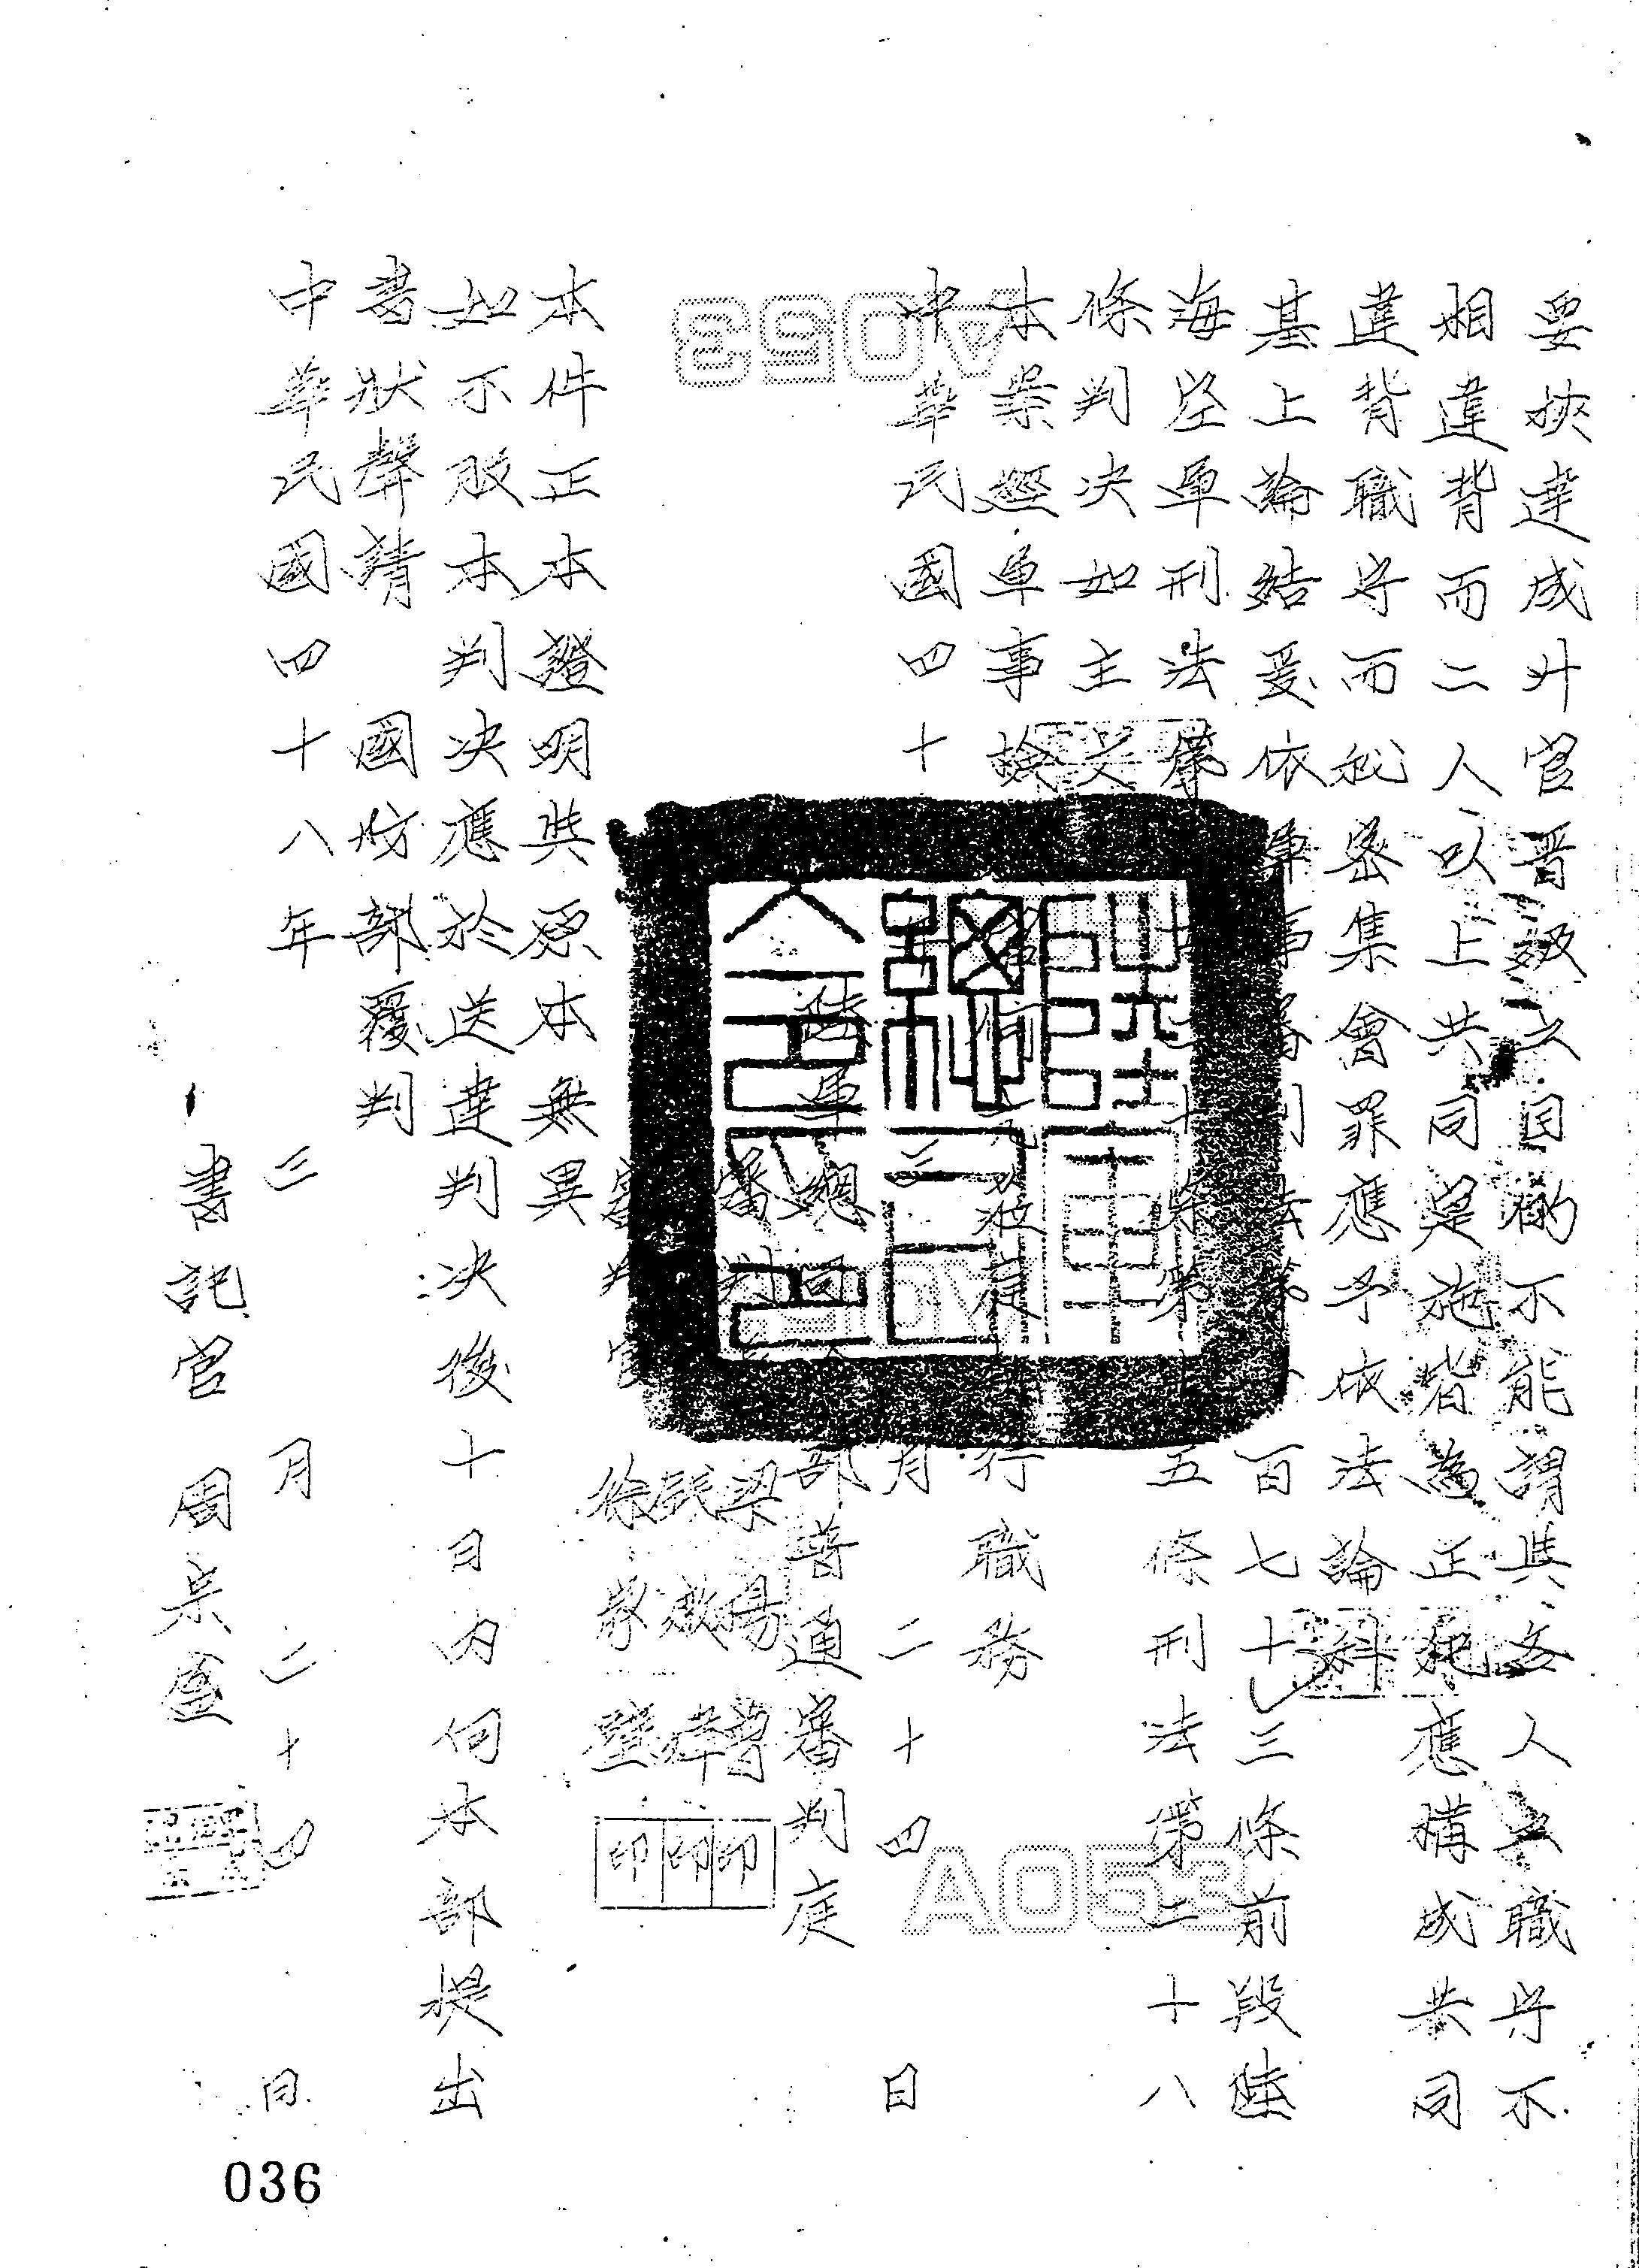 要挾達成升官晋級之目的不能謂與各人之職守不
相違背而二人以上共同實施皆為正犯應構成共同
違背職守而秘密集會罪應予依法論科
基上論結爰依軍事審判法第一百七十三條前段陸
海空軍刑法第 十 條第 五條刑法第二十八
條判決如主文
本案經軍事檢 庭 行職務
中華民國四十 年三月二十四日
陸軍總司令部普通審判庭
審判長 梁 曾 印
審判 印
審判官 徐 印
本件正本證明與原本無異
如不服本判決應於送達判決後十日內向本部提出
書狀聲請國防部覆判
中華民國四十八年三月二十四日
書記官 周宗
A053
A053
036